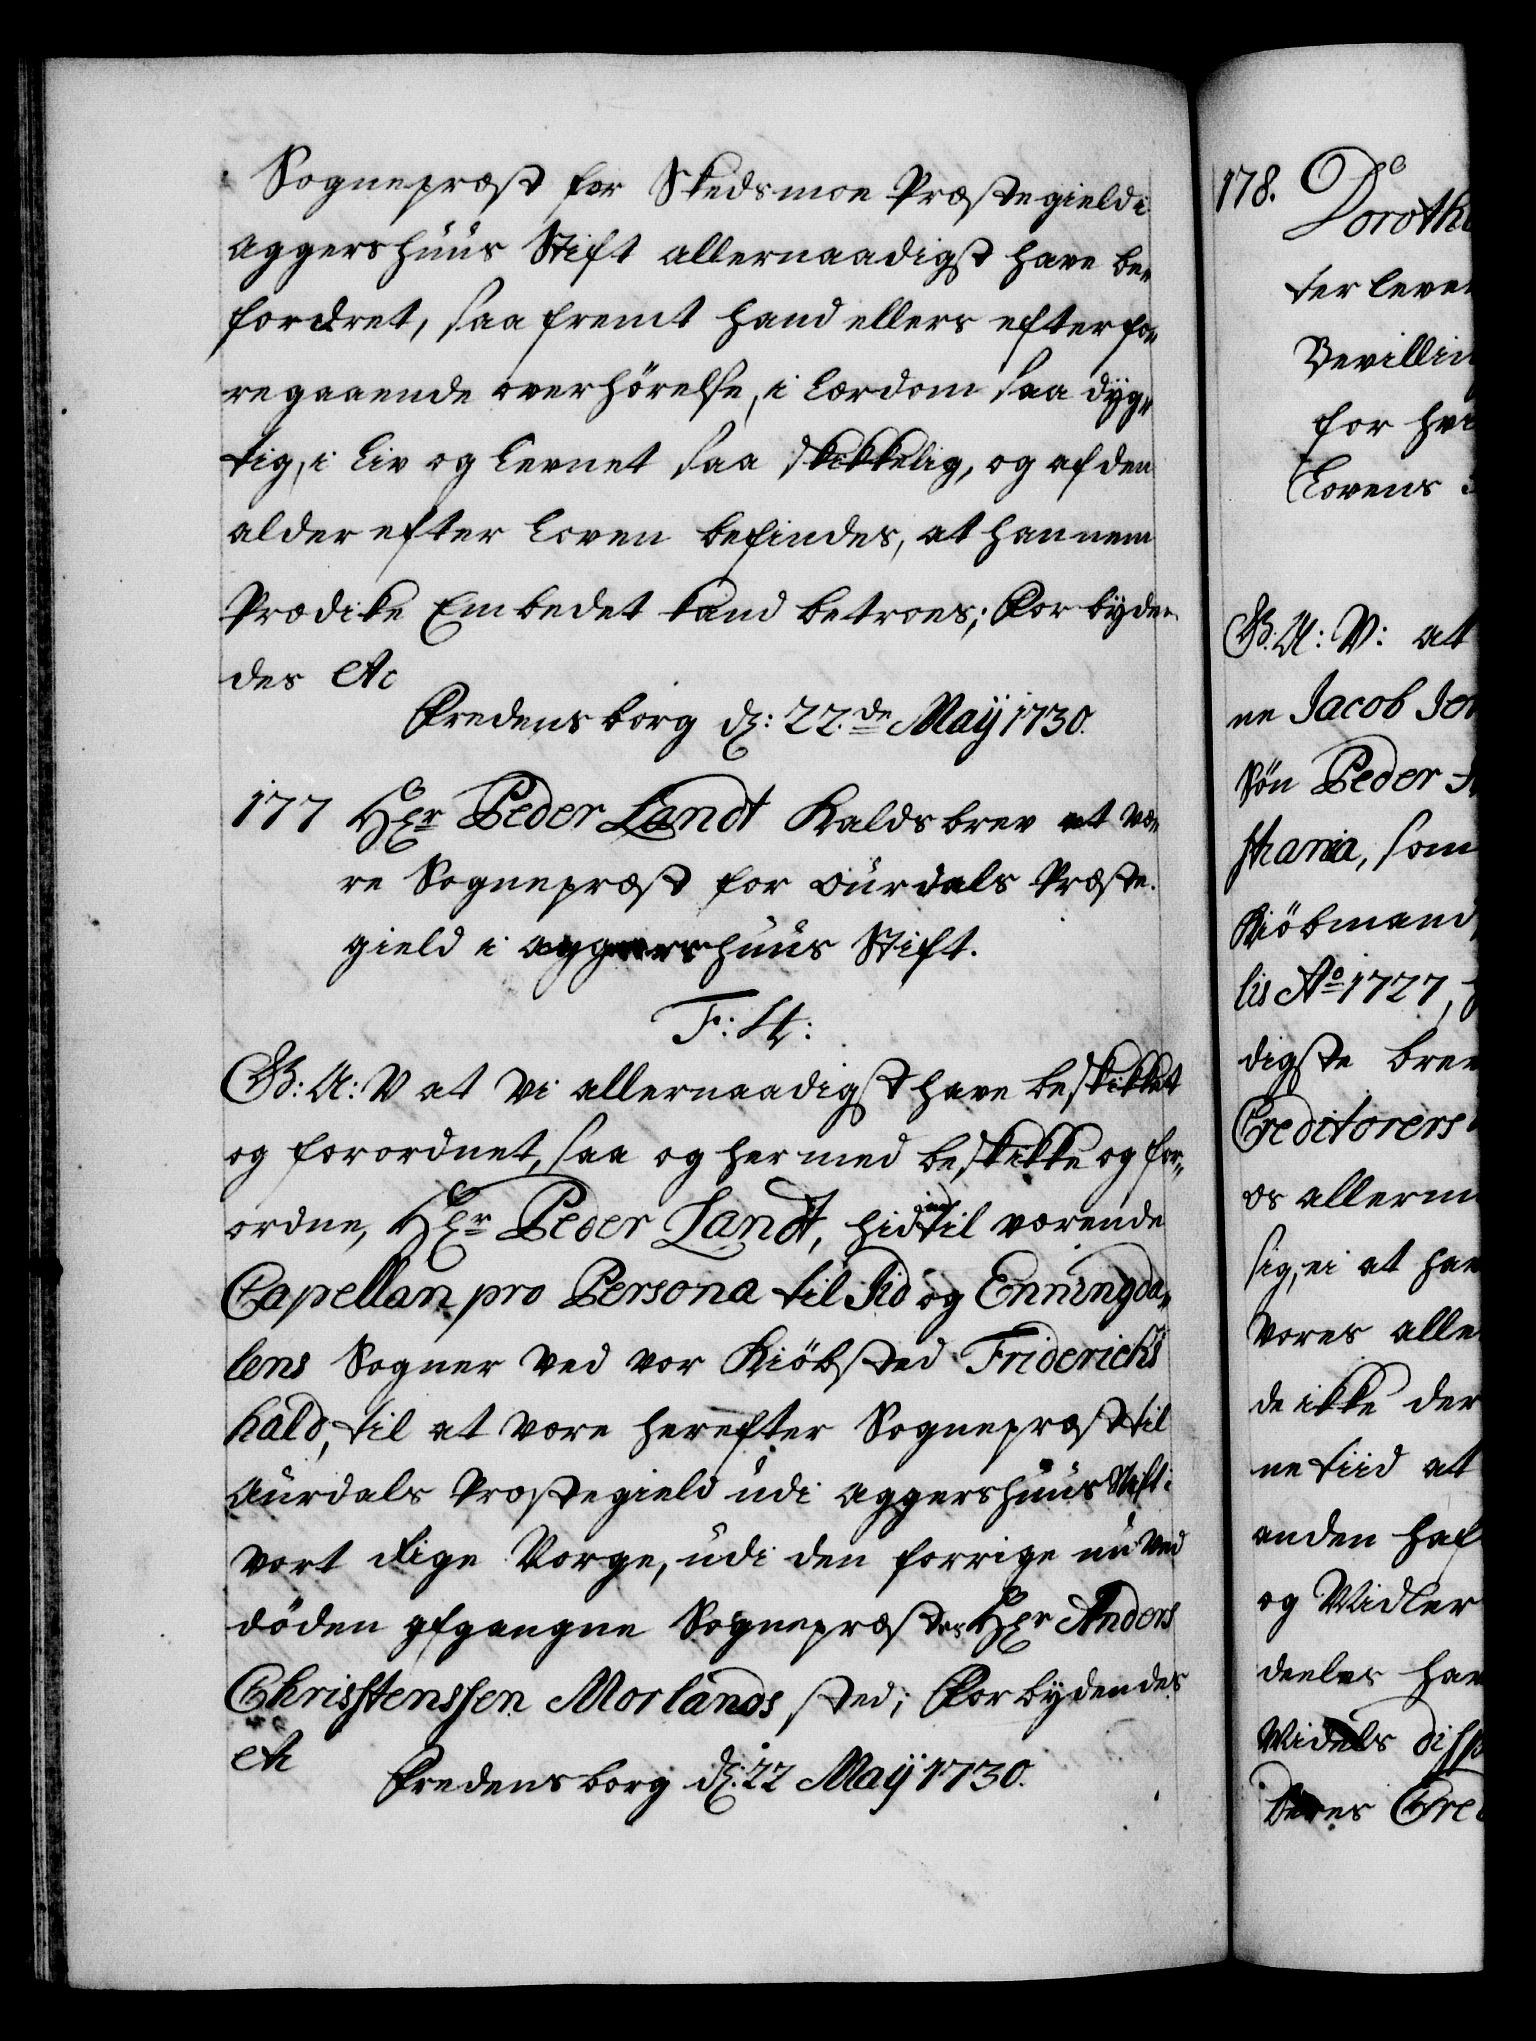 Sognepræst for Skedsmoe Præstegield i
Aggershuus Stift allernaadigst have be„
fordret, saafremt hand ellers efter fo„
regaaende overhörelse, i Lærdom saa dyg„
tig, i Liv og Levnet saa skikkelig, og af den
alder efter Loven befindes, at hannem
Prædike Embedet kand betroes; Forbyden„
des etc
Fredensborg dɇ: 22.de Maij 1730.
177 Hr Peder Landt Kaldsbrev at væ„
re Sognepræst for Ourdals Præste„
gield i Aggershuus Stift.
F: 4:
G: A: V at Vi allernaadigst have beskikket
og forordnet, saa og hermed beskikke og for„
ordne, Hr Peder Landt, hidindtil værende
Capellan pro Persona til Jid og Enningda„
lens Sogner ved vor Kiöbsted Friderichs
hald, til at være herefter Sognepræst til
Aurdals Præstegield udi Aggershuus Stift i
vort Rige Norge, udi den forrige nu ved
döden afgangne Sognepræstes Hr Anders
Christenssen Morlands sted; Forbydendes
etc
Fredensborg dɇ: 22 Maij 1730.
178.
Do
Doroth
terleve
Bevillin
for
Lovens
G. A: V: at
ne Jacob Jen
Sön Peder
stiania, som
Kiöbmand
lis Ao 1727,
digste brev
Creditorers
os allerun
sig, ei at
vores alle
de ikke der
ne tiid at
anden
og Midler
deeles
Midels disp
deres Cred